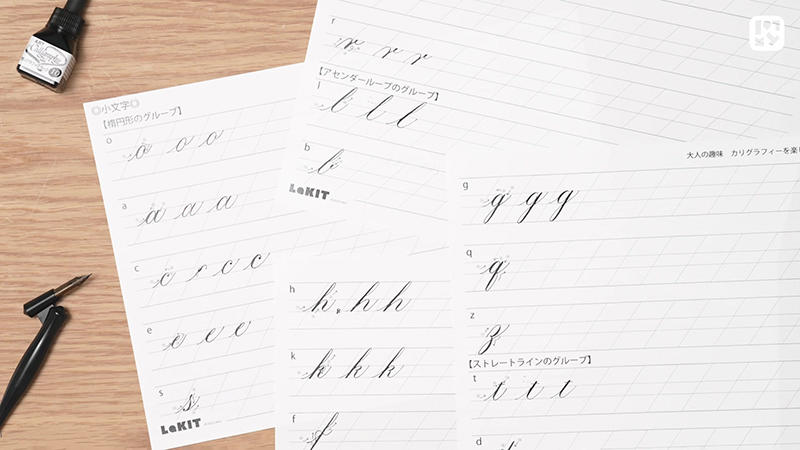 ◎小文字◎
【楕円形のグループ】
o
o o o
a
a a a
c
c c c
e
e e e
s
s
LaKIT
r
r r r
【アセンダーループのグループ】
l
l l l
b
b
LaKIT
h
h h h
k
k k k
f
f
大人の趣味 カリグラフィーを楽し
g
g g g
q
q
z
z
【ストレートラインのグループ】
t
t t t
d